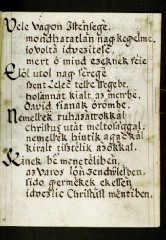 Vele vagon Istensege.
mondhatatlan nag kegelme,
io volta iduesitese.
mert ő mind ezeknek feie
Elől utol nag serege
szent Lelec telbe segebe.
hosannat kialt, az menbe.
david fianak örömbe.
Nemellek ruhazattokkal
christus utat meltosaggal.
nemellek hintik agackal
kiralt tisztelik azokkal.
Kinek bé meneteliben,
az varos lön zendülesben,
sido germekek ekessen
iduezlic Christust mentiben.